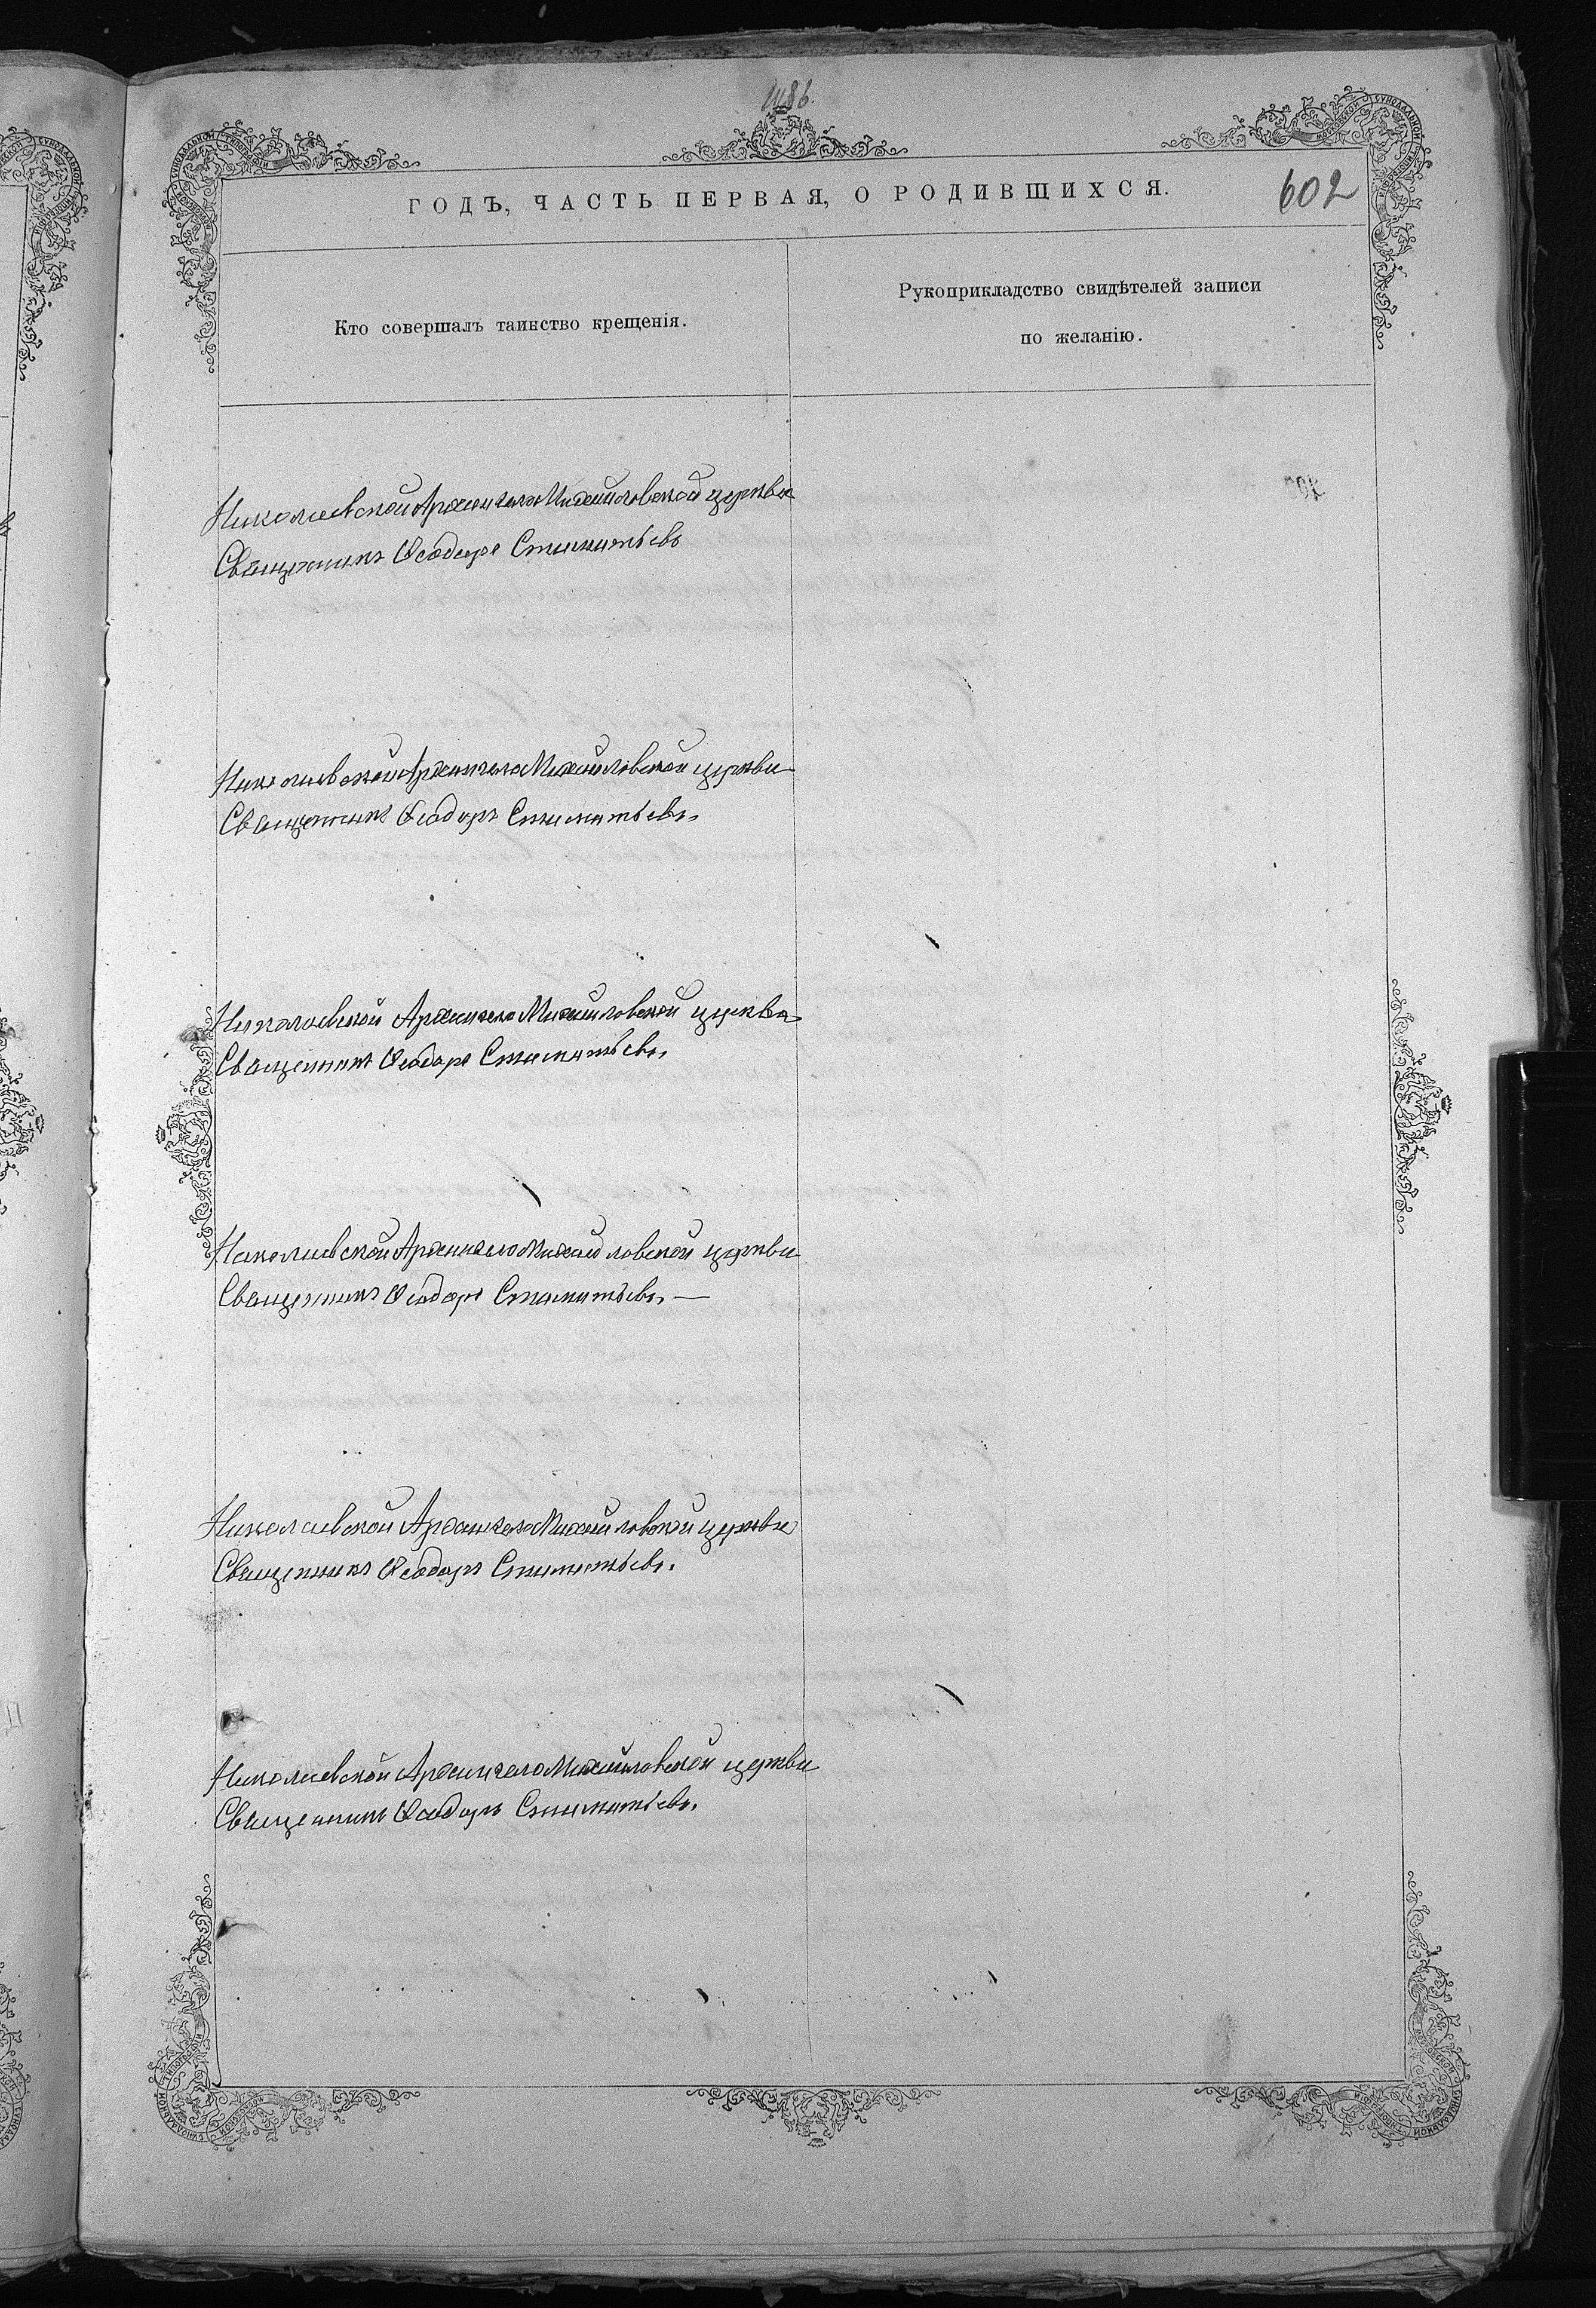 602
ГОДЪ, ЧАСТЬ ПЕРВАЯ, О РОДИВШИХСЯ.
Кто совершалъ таинство крещенія.
Рукоприкладство свидѣтелей записи
по желанію.
Николаевской Архангело Михайловской церкви
Священникъ Ѳеодоръ Стиматьевъ
Николаевской Архангело Михайловской церкви
Священникъ Ѳеодоръ Стиматьевъ.
Николаевской Архангело Михайловской церкви
Священникъ Ѳеодоръ Стиматьевъ.
Николаевской Архангело Михайловской церкви
Священникъ Ѳеодоръ Стиматьевъ. —
Николаевской Архангело Михайловской церкви
Священникъ Ѳеодоръ Стиматьевъ.
Николаевской Архангело Михайловской церкви
Священникъ Ѳеодоръ Стиматьевъ.